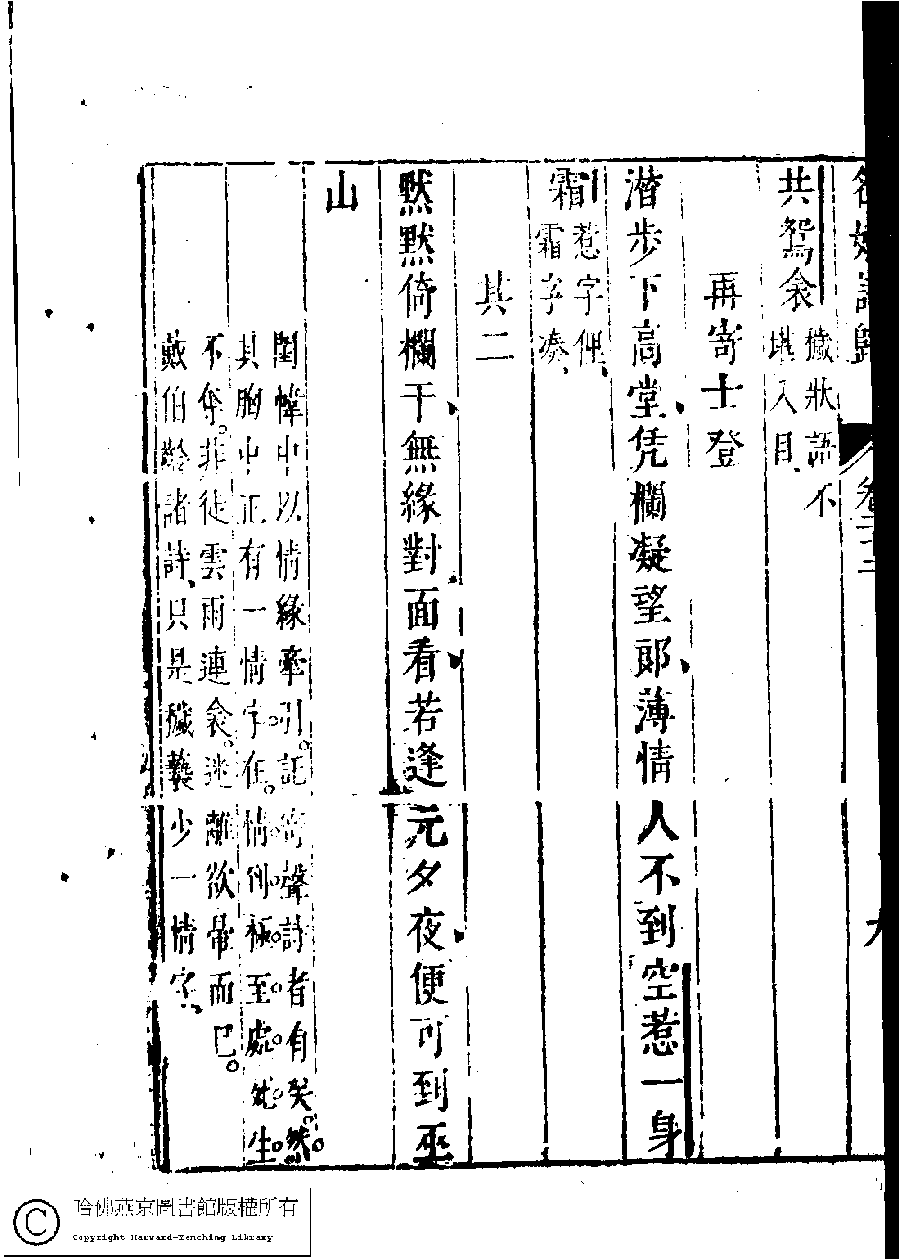 名媛詩歸
共鴛衾 穢狀語不
堪入目、
再寄士登
潜步下高堂、凭欄凝望郎、薄情人不到空惹一身
霜 惹字俚、
霜字凑、
其二
默默倚欄干、無緣對面看、若逢元夕夜、便可到巫
山
閨幃中以情緣牽引。託寄聲詩者有矣。然。
其胸中正有一情字在。情。到。極。至。處。死。生。
不奪。非徒雲雨連衾。迷離欲而已。
戴伯齡諸詩、只是穢褻少一情字、
哈佛燕京圖書館版權所有
Copyright Harvard-Yenching Library